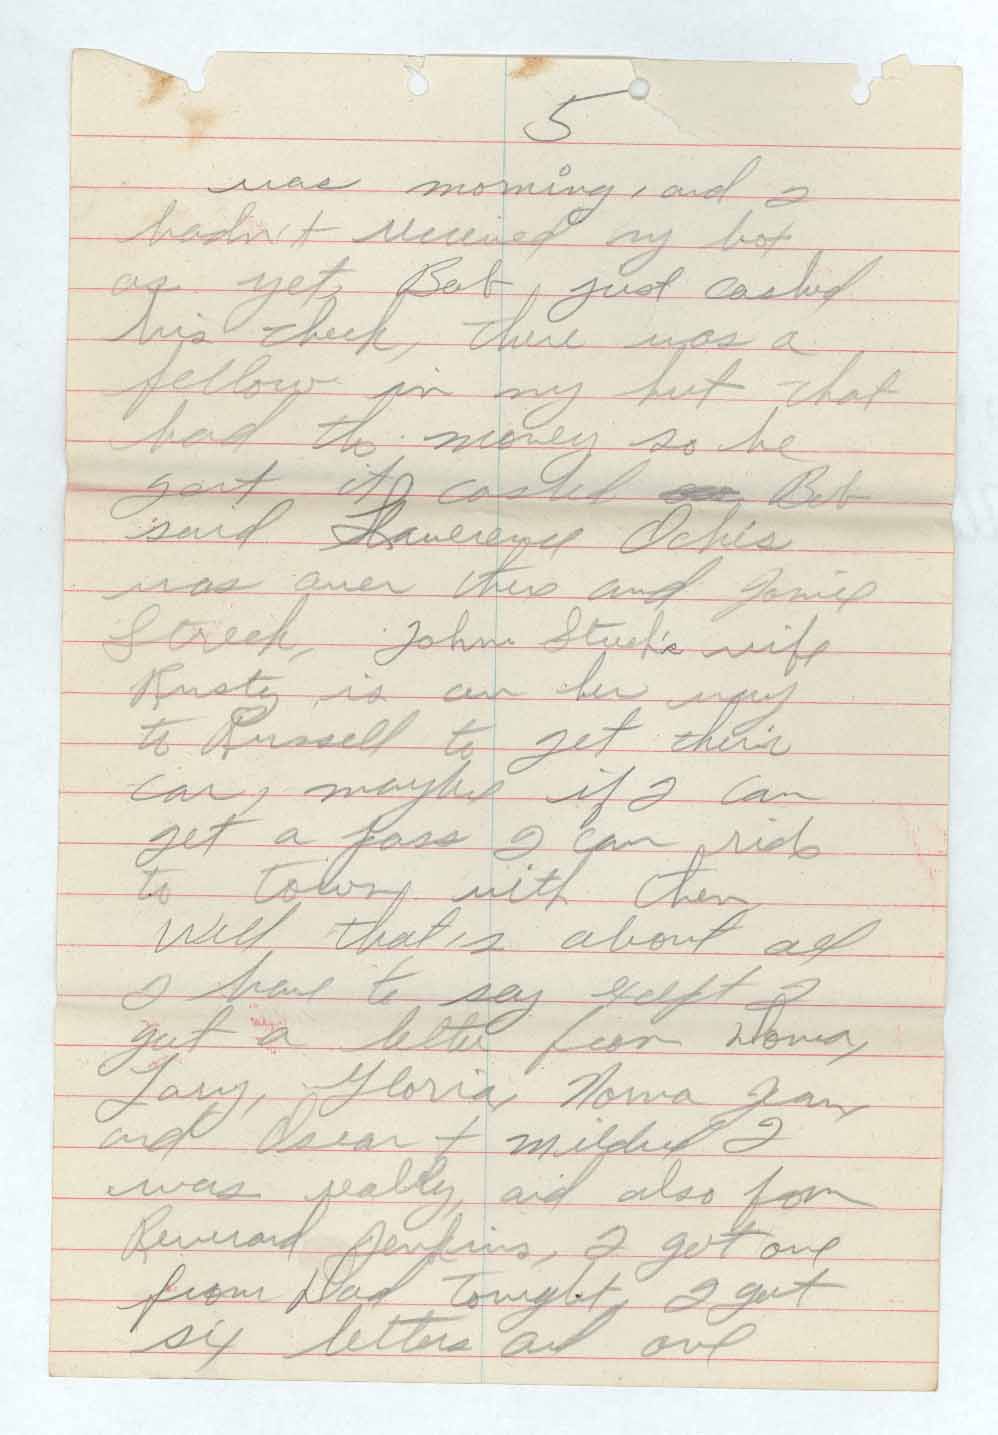 5
was morning, and I
hadn't received my box
as yet, Bob, just cashed
his check, there was a
fellow in my hut that
had the money so he
got it cashed Bob
said Lawerence Ochis
was over there and
Streck, John Streck's wife
Rusty is on her way
to Russell to get their
car, maybe if I can
get a pass I can ride
to town with them
Well that's about all
I have to say except I
got a letter from
Gloria, Norma Jean,
and Oscar + Mildred I
was really, and also from
Reverand Jenkins, I got one
from Dad Tonight, I got
six letters and one